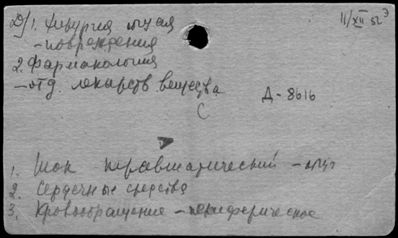 11/XII 52
1. Хирургия общая
- повреждения
2. Фармакология
- отд. лекарств вещества
Д-8616
С
1. Шок травматический -
2. Сердечные средства
3. Кровообращение - периферическое